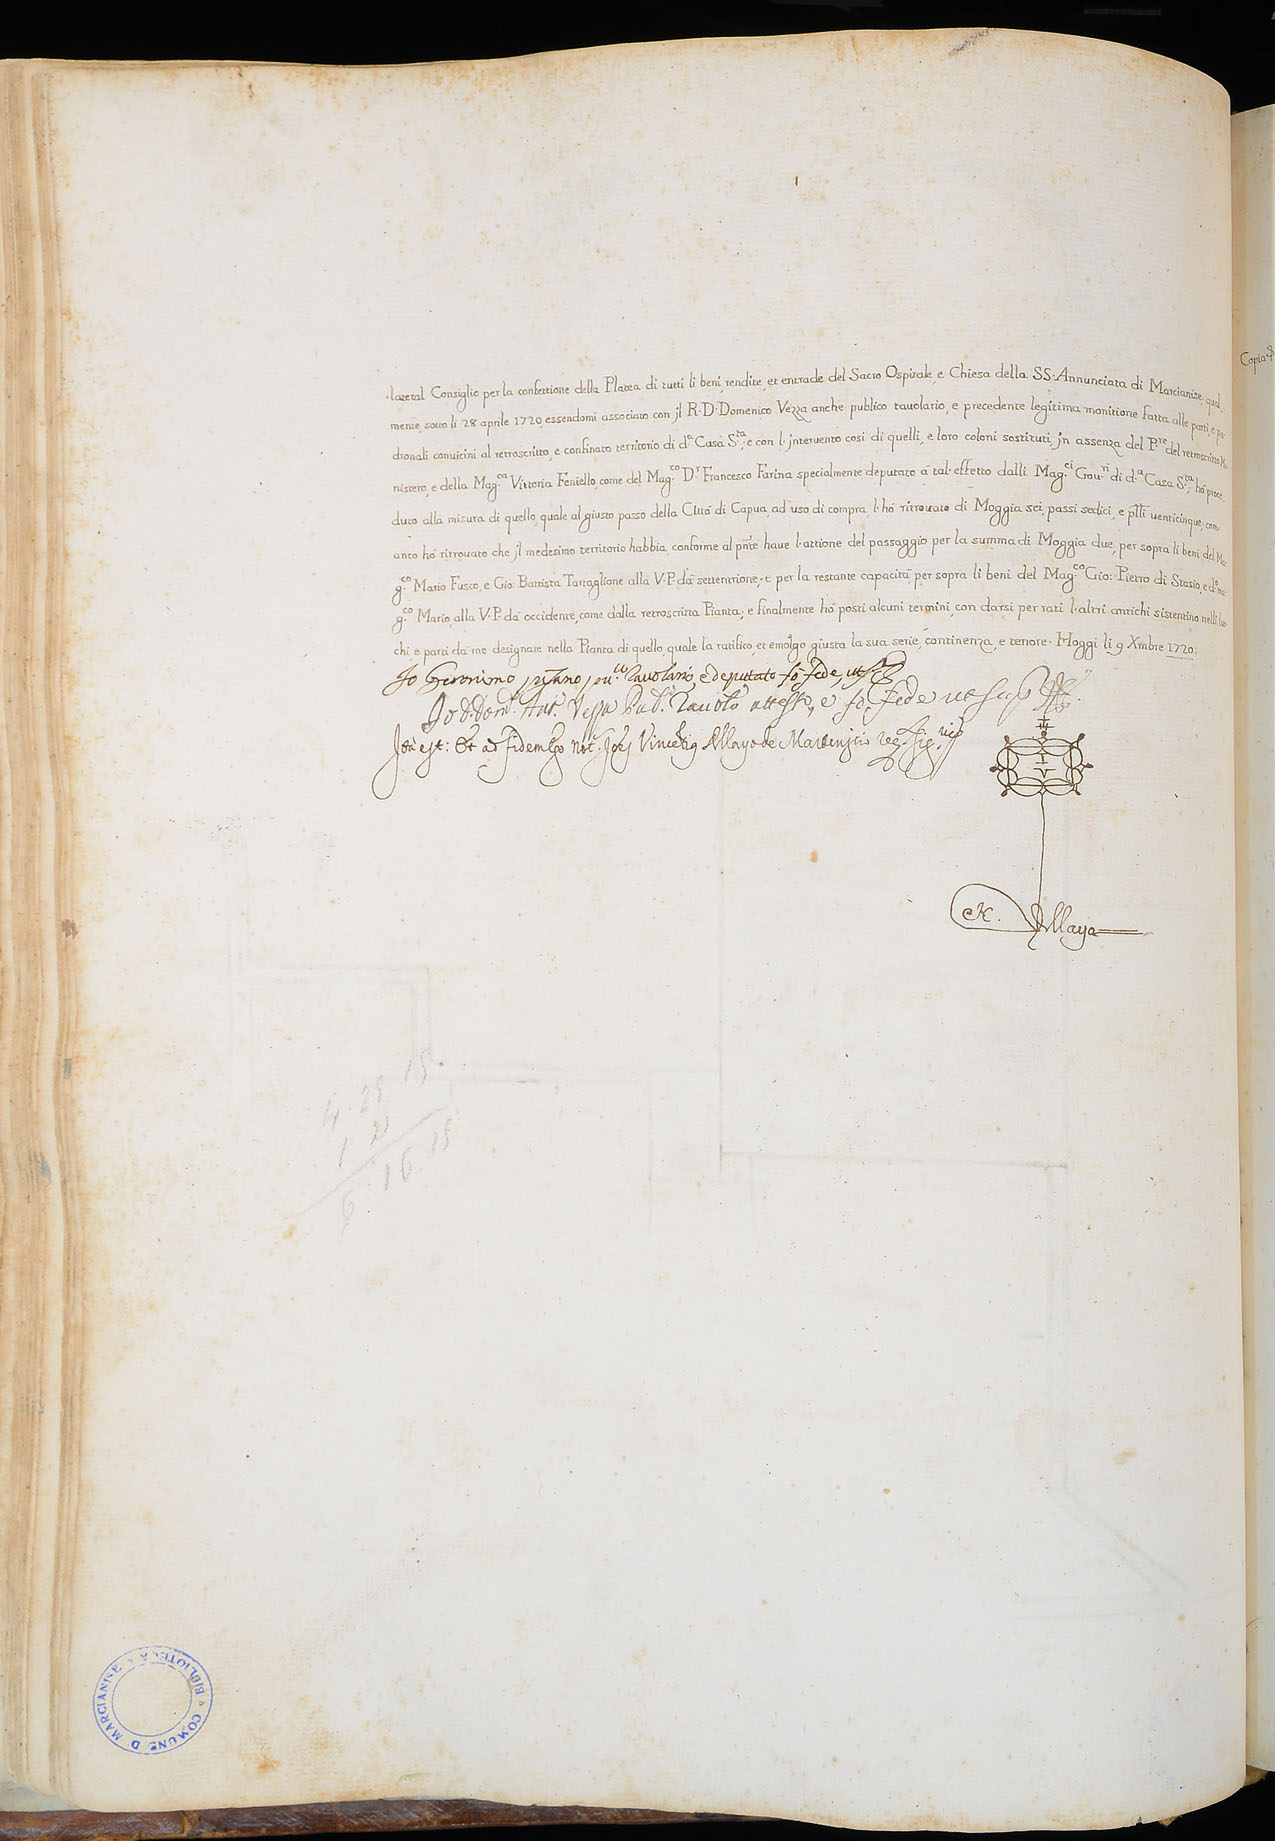 lateral Consiglio per la confettione della Platea di tutti li beni, rendite, et entrade del Sacro Ospitale, e Chiesa della SS. Annunciata di Marcianise, qual
mente, sotto li 28 aprile 1720, essendomi associato con jl R. D. Domenico Vezza anche publico tavolario, e precedente legitima monitione fatta alle parti, e pa
dronali convicini al retroscritto, e confinato territorio di d.ª Casa S.ta; e con l'jntervento così di quelli, e loro coloni sostituti, jn assenza del P.re del retroscritto Mo
nistero, e della Mag.ca Vittoria Feniello, come del Mag.co D.r Francesco Farina specialmente deputato à tal' effetto dalli Mag.ci Gou.ri di d.ª Casa S.ta, hò proce
duto alla misura di quello, quale al giusto passo della Città di Capua, ad uso di compra, l'hò ritrouato di Moggia sei, passi sedici, e p̄lli venticinque, com'
anco hò ritrouato che jl medesimo territorio habbia, conforme al pñte have l'attione del passaggio per la summa di Moggia due, per sopra li beni del Ma
g.co Mario Fusco, e Gio: Battista Tartaglione alla V. P. dà settentrione; e per la restante capacità, per sopra li beni del Mag.co Gio: Pietro di Stasio, e d.o Ma
g.co Mario, alla V. P. dà occidente, come dalla retroscritta Pianta; e finalmente hò posti alcuni termini, con darsi per rati l'altri antichi sistentino nelli luo
chi e parti dà me designate nella Pianta di quello, quale là ratifico, et emolgo giusta la sua serie, continenza, e tenore. Hoggi li 9 Xmbre 1720.
Io Geronimo pu.co Tavolario, e deputato fò fede, ut s.a
Io D. Dom.co Ant. Vezza Pub.o Tavolo attesto, e fò fede ut sup.a
Ita est: Et ad fidem Ego Not. Vincentius Allayo de Marcenisio
N. Allayo
Copia
4. 25 15
1 21
6 16 15
BIBLIOTECA COMUNE DI MARCIANISE